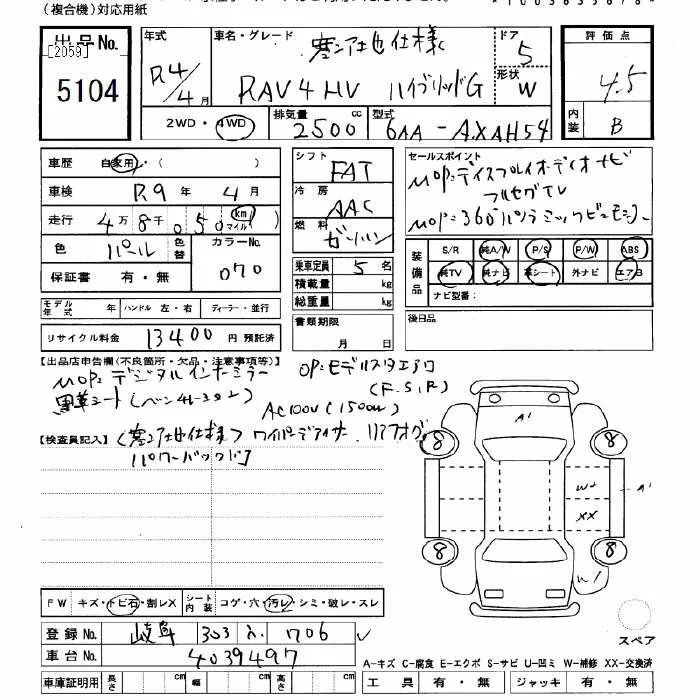 (複合機)対応用紙
出品No.
[2059]
5104
年式 R4/4月
車名・グレード 寒冷地仕様 RAV4 HV ハイブリッドG
ドア 5
形状 W
評価点 4.5
内装 B
2WD・4WD
排気量 2500 cc
型式 6AA-AXAH54
車歴 自家用・( )
車検 R9年 4月
走行 4万8千050 (km マイル)
色 パール 色替 カラーNo. 070
保証書 有・無
シフト FAT
冷房 AAC
燃料 ガソリン
乗車定員 5名
積載量 kg
総重量 kg
セールスポイント
MOP=ディスプレイオーディオナビ
フルセグTV
MOP=360°パノラミックビューモニター
装備品
S/R 純A/W P/S P/W ABS
純TV 純ナビ 革シート 外ナビ エアB
ナビ型番:
モデル年式 年 ハンドル 左・右 ディーラー・並行
リサイクル料金 13400円 預託済
書類期限 月 日
後日品
【出品店申告欄(不良箇所・欠品・注意事項等)】
MOP=デジタルインナーミラー OP=モデリスタエアロ
黒革シート (F.S.R)
AC100V(1500W)
【検査員記入】 (寒冷地仕様)ワイパーデアイサー リアフォグ
パワーバックドア
A1
8 8
W2 A1
XX
8 8
W1
スペア
FW キズ・トビ石・割レX シート内装 コゲ・穴・汚レ・シミ・破レ・スレ
登録No. 岐阜 303 706
車台No. 4039497
車庫証明用 長さ cm 幅 cm 高さ cm
A-キズ C-腐食 E-エクボ S-サビ U-凹ミ W-補修 XX-交換済
工具 有・無 ジャッキ 有・無